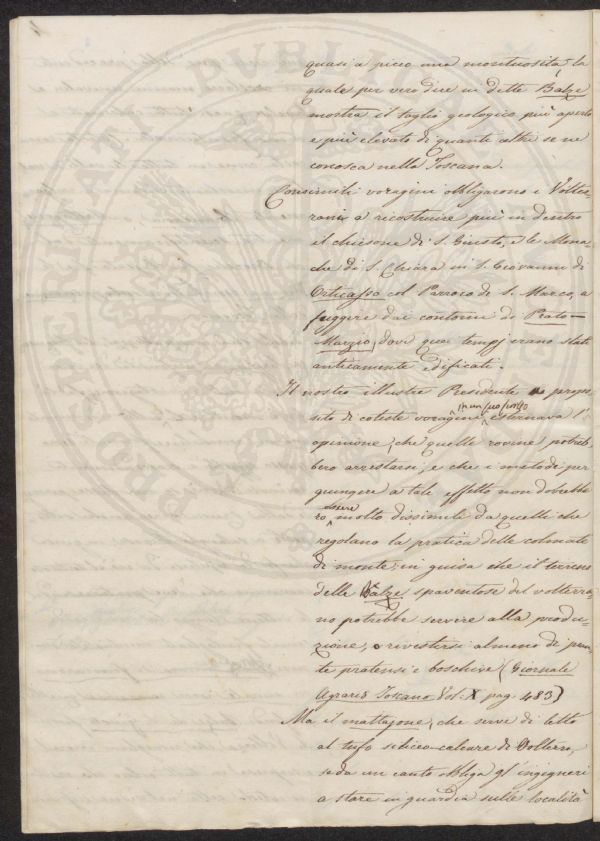 quasi a picco una montuosità, la
quale per vero dire in dette Balze
mostra il taglio geologico più aperto
e più elevato di quanti altri se ne
conosca nella Toscana.
Consimili voragini obbligarono i Volter-
rani a ricostruire più in dentro
il chiesone di S. Giusto, e le Mona-
che di S. Chiara in S. Giovanni di
Orticasso col Parroco di S. Marco, a
fuggire dai contorni di Prato-
Marzio, dove quei tempj erano stati
anticamente edificati.
Il nostro illustre Presidente a propo-
sito di coteste voragini in un suo
esternava l'
opinione, che quelle rovine potreb-
bero arrestarsi, e che i metodi per
giungere a tale effetto non dovrebbe
ro essere molto dissimili da quelli che
regolano la pratica delle colmate
di monte; in guisa che il terreno
delle Balze spaventose del volterra-
no potrebbe servire alla produ-
zione, o rivestirsi almeno di pian-
te pratensi e boschive (Giornale
Agrario Toscano Vol. X pag. 483)
Ma il mattajone, che serve di letto
al tufo siliceo-calcare di Volterra,
se da un canto obbliga gl'ingegneri
a stare in guardia sulle località
PROSPERITATI PUBLICAE